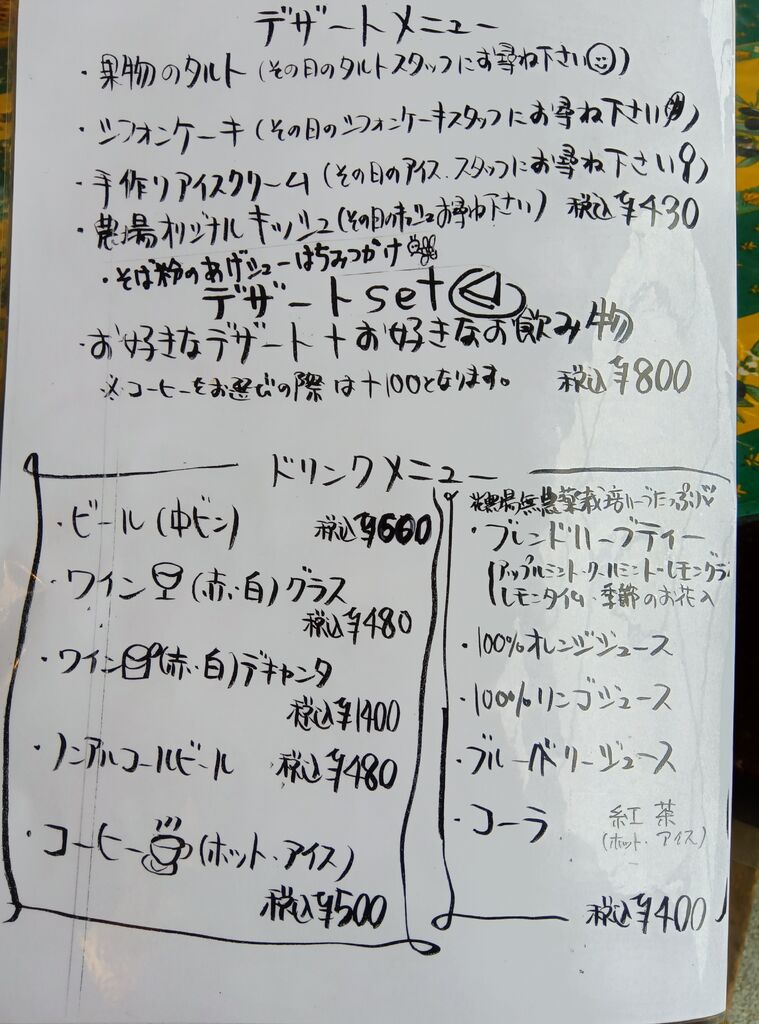 デザートメニュー
・果物のタルト (その日のタルトスタッフにお尋ね下さい)
・シフォンケーキ (その日のシフォンケーキスタッフにお尋ね下さい)
・手作りアイスクリーム (その日のアイス、スタッフにお尋ね下さい)
・農場オリジナルキッシュ (その日のキッシュお尋ね下さい) 税込¥430
・そば粉のあげシューはちみつかけ
デザートset
・お好きなデザート+お好きなお飲み物
※コーヒーをお選びの際は+100となります。 税込¥800
ドリンクメニュー
・ビール (中ビン) 税込¥600
・ワイン (赤・白) グラス
税込¥480
・ワイン (赤・白) デキャンタ
税込¥1400
・ノンアルコールビール 税込¥480
・コーヒー (ホット・アイス)
税込¥500
農場無農薬栽培ハーブたっぷり♡
・ブレンドハーブティー
(アップルミント・クールミント・レモングラ
レモンタイム・季節のお花入
・100%オレンジジュース
・100%リンゴジュース
・ブルーベリージュース
・コーラ 紅茶
(ホット・アイス)
税込¥400